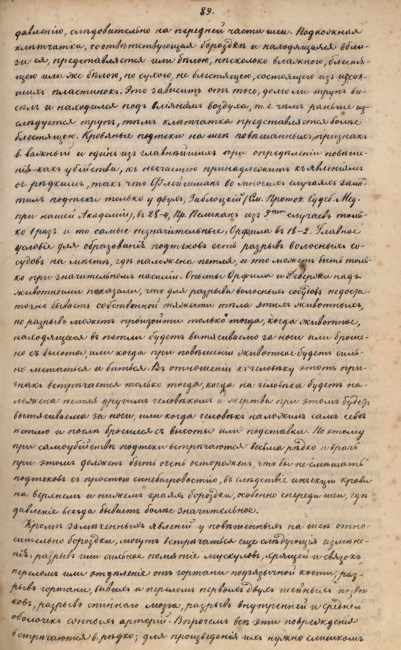 89.
давленію, слѣдовательно на передней части шеи. Подкожная
клѣтчатка, соотвѣтствующая бороздкѣ и находящаяся вбли-
зи ея, представляется или бѣлою, нѣсколько влажною, блестя-
щею или же бѣлою, но сухою, не блестящею, состоящею изъ изсох-
шихъ пластинокъ. Это зависитъ отъ того, долго ли трупъ ви-
сѣлъ и находился подъ вліяніемъ воздуха, т.е. чѣмъ раньше из-
слѣдуется трупъ, тѣмъ клѣтчатка представляется болѣе
блестящею. Кровяные подтеки на шеѣ повѣшенныхъ, признакъ
важный и одинъ изъ главнѣйшихъ при опредѣленіи повѣше-
нія какъ убійства, къ несчастію принадлежитъ къ явленіямъ
рѣдкимъ, такъ что Флейшманъ во многихъ случаяхъ замѣ-
тилъ подтеки только у двухъ, Заблоцкій (См. Проток. Судеб. Мед.
при нашей Академіи), въ 28-4, Пр. Пеликанъ изъ 9ти случаевъ толь-
ко 1 разъ и то самые незначительные, Орфила въ 18-2. Главное
условіе для образованія подтековъ есть разрывъ волосныхъ со-
судовъ на мѣстѣ, гдѣ наложена петля, и это можетъ быть толь-
ко при значительномъ насиліи. Опыты Орфила и Девержи надъ
животными показали, что для разрыва волосныхъ сосудовъ недоста-
точно бываетъ собственной тяжести тѣла этихъ животныхъ,
но разрывъ можетъ произойти только тогда, когда животное,
находящееся въ петлѣ будетъ вытягиваемо за ноги или броше-
но съ высоты, или когда при повѣшеніи животное будетъ силь-
но метаться и биться. Въ отношеніи къ человѣку этотъ при-
знакъ встрѣчается только тогда, когда на человѣка будетъ на-
ложена петля другимъ человѣкомъ и жертва при этомъ будетъ
вытягиваема за ноги, или когда человѣкъ наложилъ самъ себѣ
петлю и потомъ бросился съ высоты или подставки. По этому
при самоубійствѣ подтеки встрѣчаются весьма рѣдко и врачъ
при этомъ долженъ быть очень остороженъ, чтобы не смѣшать
подтековъ съ простою синебагровостію, въ слѣдствіе инъекціи крови
на верхнемъ и нижнемъ краяхъ бороздки, особенно спереди шеи, гдѣ
давленіе всегда бываетъ болѣе значительное.
Кромѣ замѣченныхъ явленій у повѣшенныхъ на шеѣ отно-
сительно бороздки, могутъ встрѣчаться еще слѣдующія измѣне-
нія: разрывъ или сильное помятіе мускуловъ, хрящей и связокъ
переломъ или отдѣленіе отъ гортани подъязычной кости, раз-
рывъ гортани, вывихъ и переломъ первыхъ двухъ шейныхъ позвон-
ковъ, разрывъ спиннаго мозга, разрывъ внутренней и средней
оболочекъ сонныхъ артерій. Впрочемъ всѣ эти поврежденія
встрѣчаются рѣдко; для произведенія ихъ нужно слишкомъ